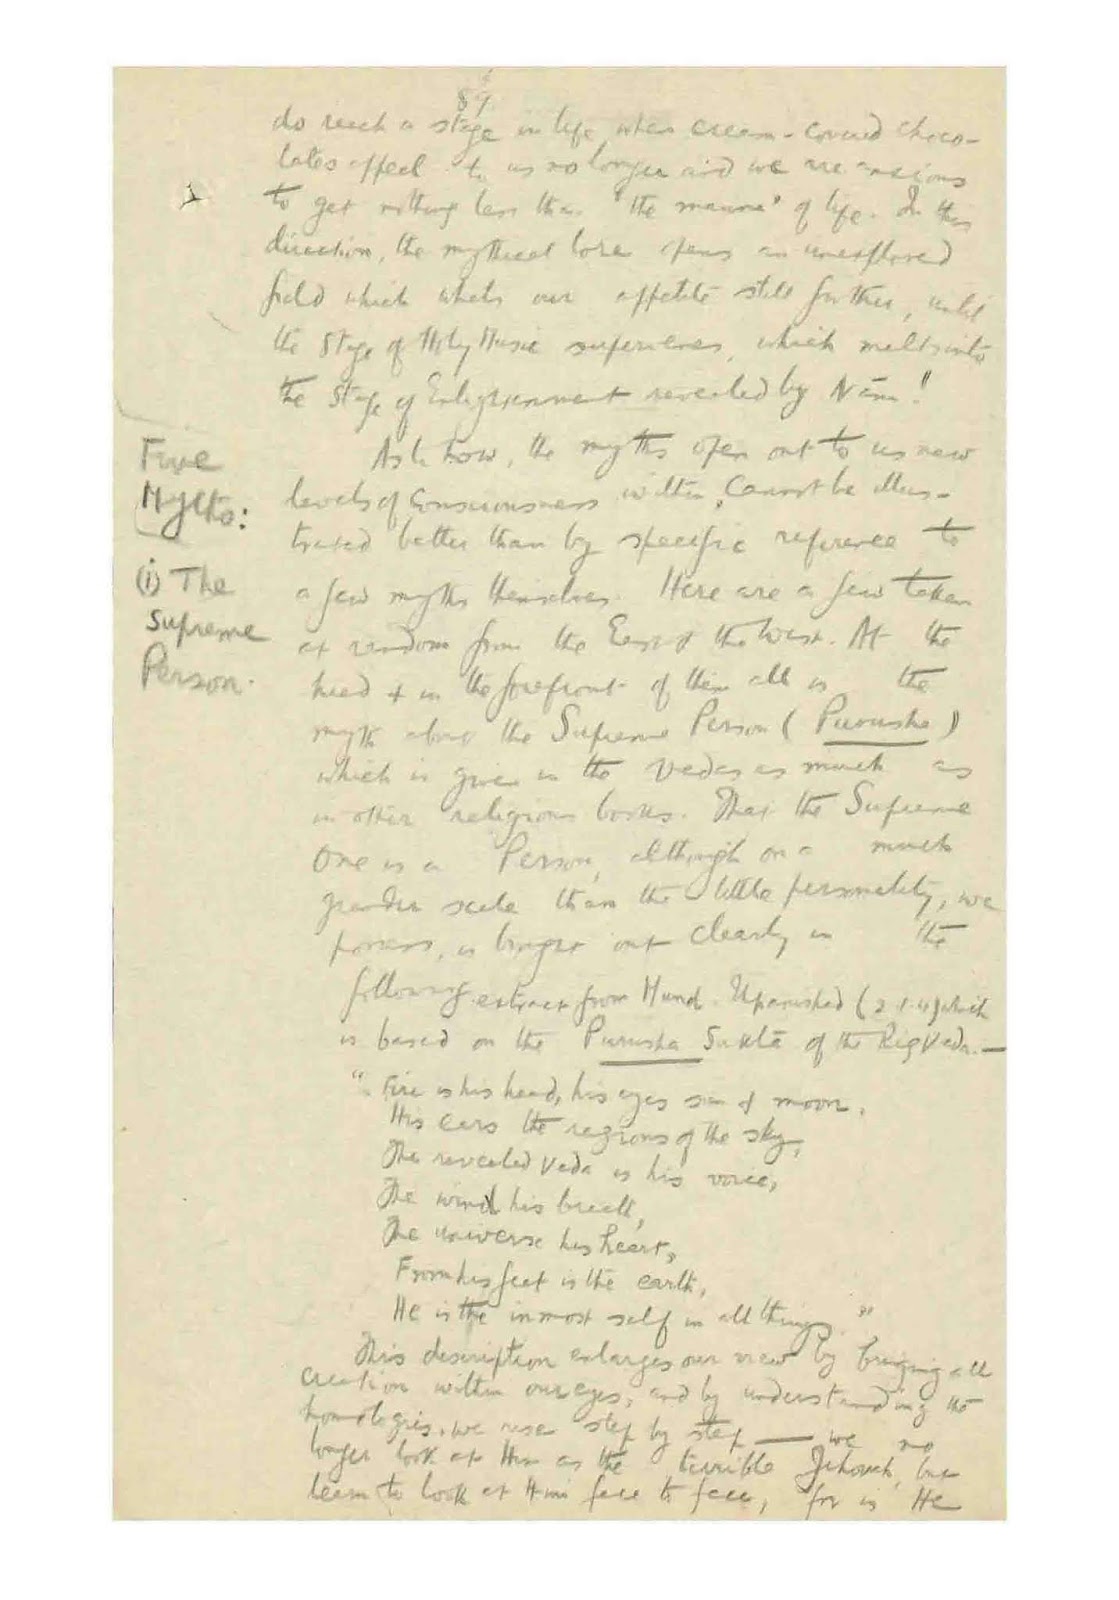 89
do reach a stage in life when cream-covered choco-
lates appeal to us no longer and we are anxious
to get nothing less than "the manna" of life. In this
direction, the mythical lore opens an unexplored
field which whets our appetite still further, until
the stage of Holy Music supervenes, which melts into
the stage of Enlightenment revealed by Nām!
Five
Myths:
(i) The
Supreme
Person.
As to how, the myths open out to us new
levels of Consciousness within, cannot be illus-
trated better than by specific reference to
a few myths themselves. Here are a few taken
at random from the East & the West. At the
head & in the forefront of them all is the
myth about the Supreme Person (Purusha)
which is given in the Vedas as much as
in other religious books. That the Supreme
One is a Person, although on a much
grander scale than the little personality, we
possess, is brought out clearly in the
following extract from Mund. Upanishad (2.1.4) which
is based on the Purusha Suktā of the Rig Veda.—
"Fire is his head, his eyes sun & moon,
His ears the regions of the sky,
The revealed Veda is his voice,
The wind his breath,
The universe his heart,
From his feet is the earth,
He is the inmost self in all things."
This description enlarges our view by bringing all
creation within our eyes, and by understanding the
homologies, we rise step by step — we no
longer look at Him as the terrible Jehovah, but
learn to look at Him face to face, for is He